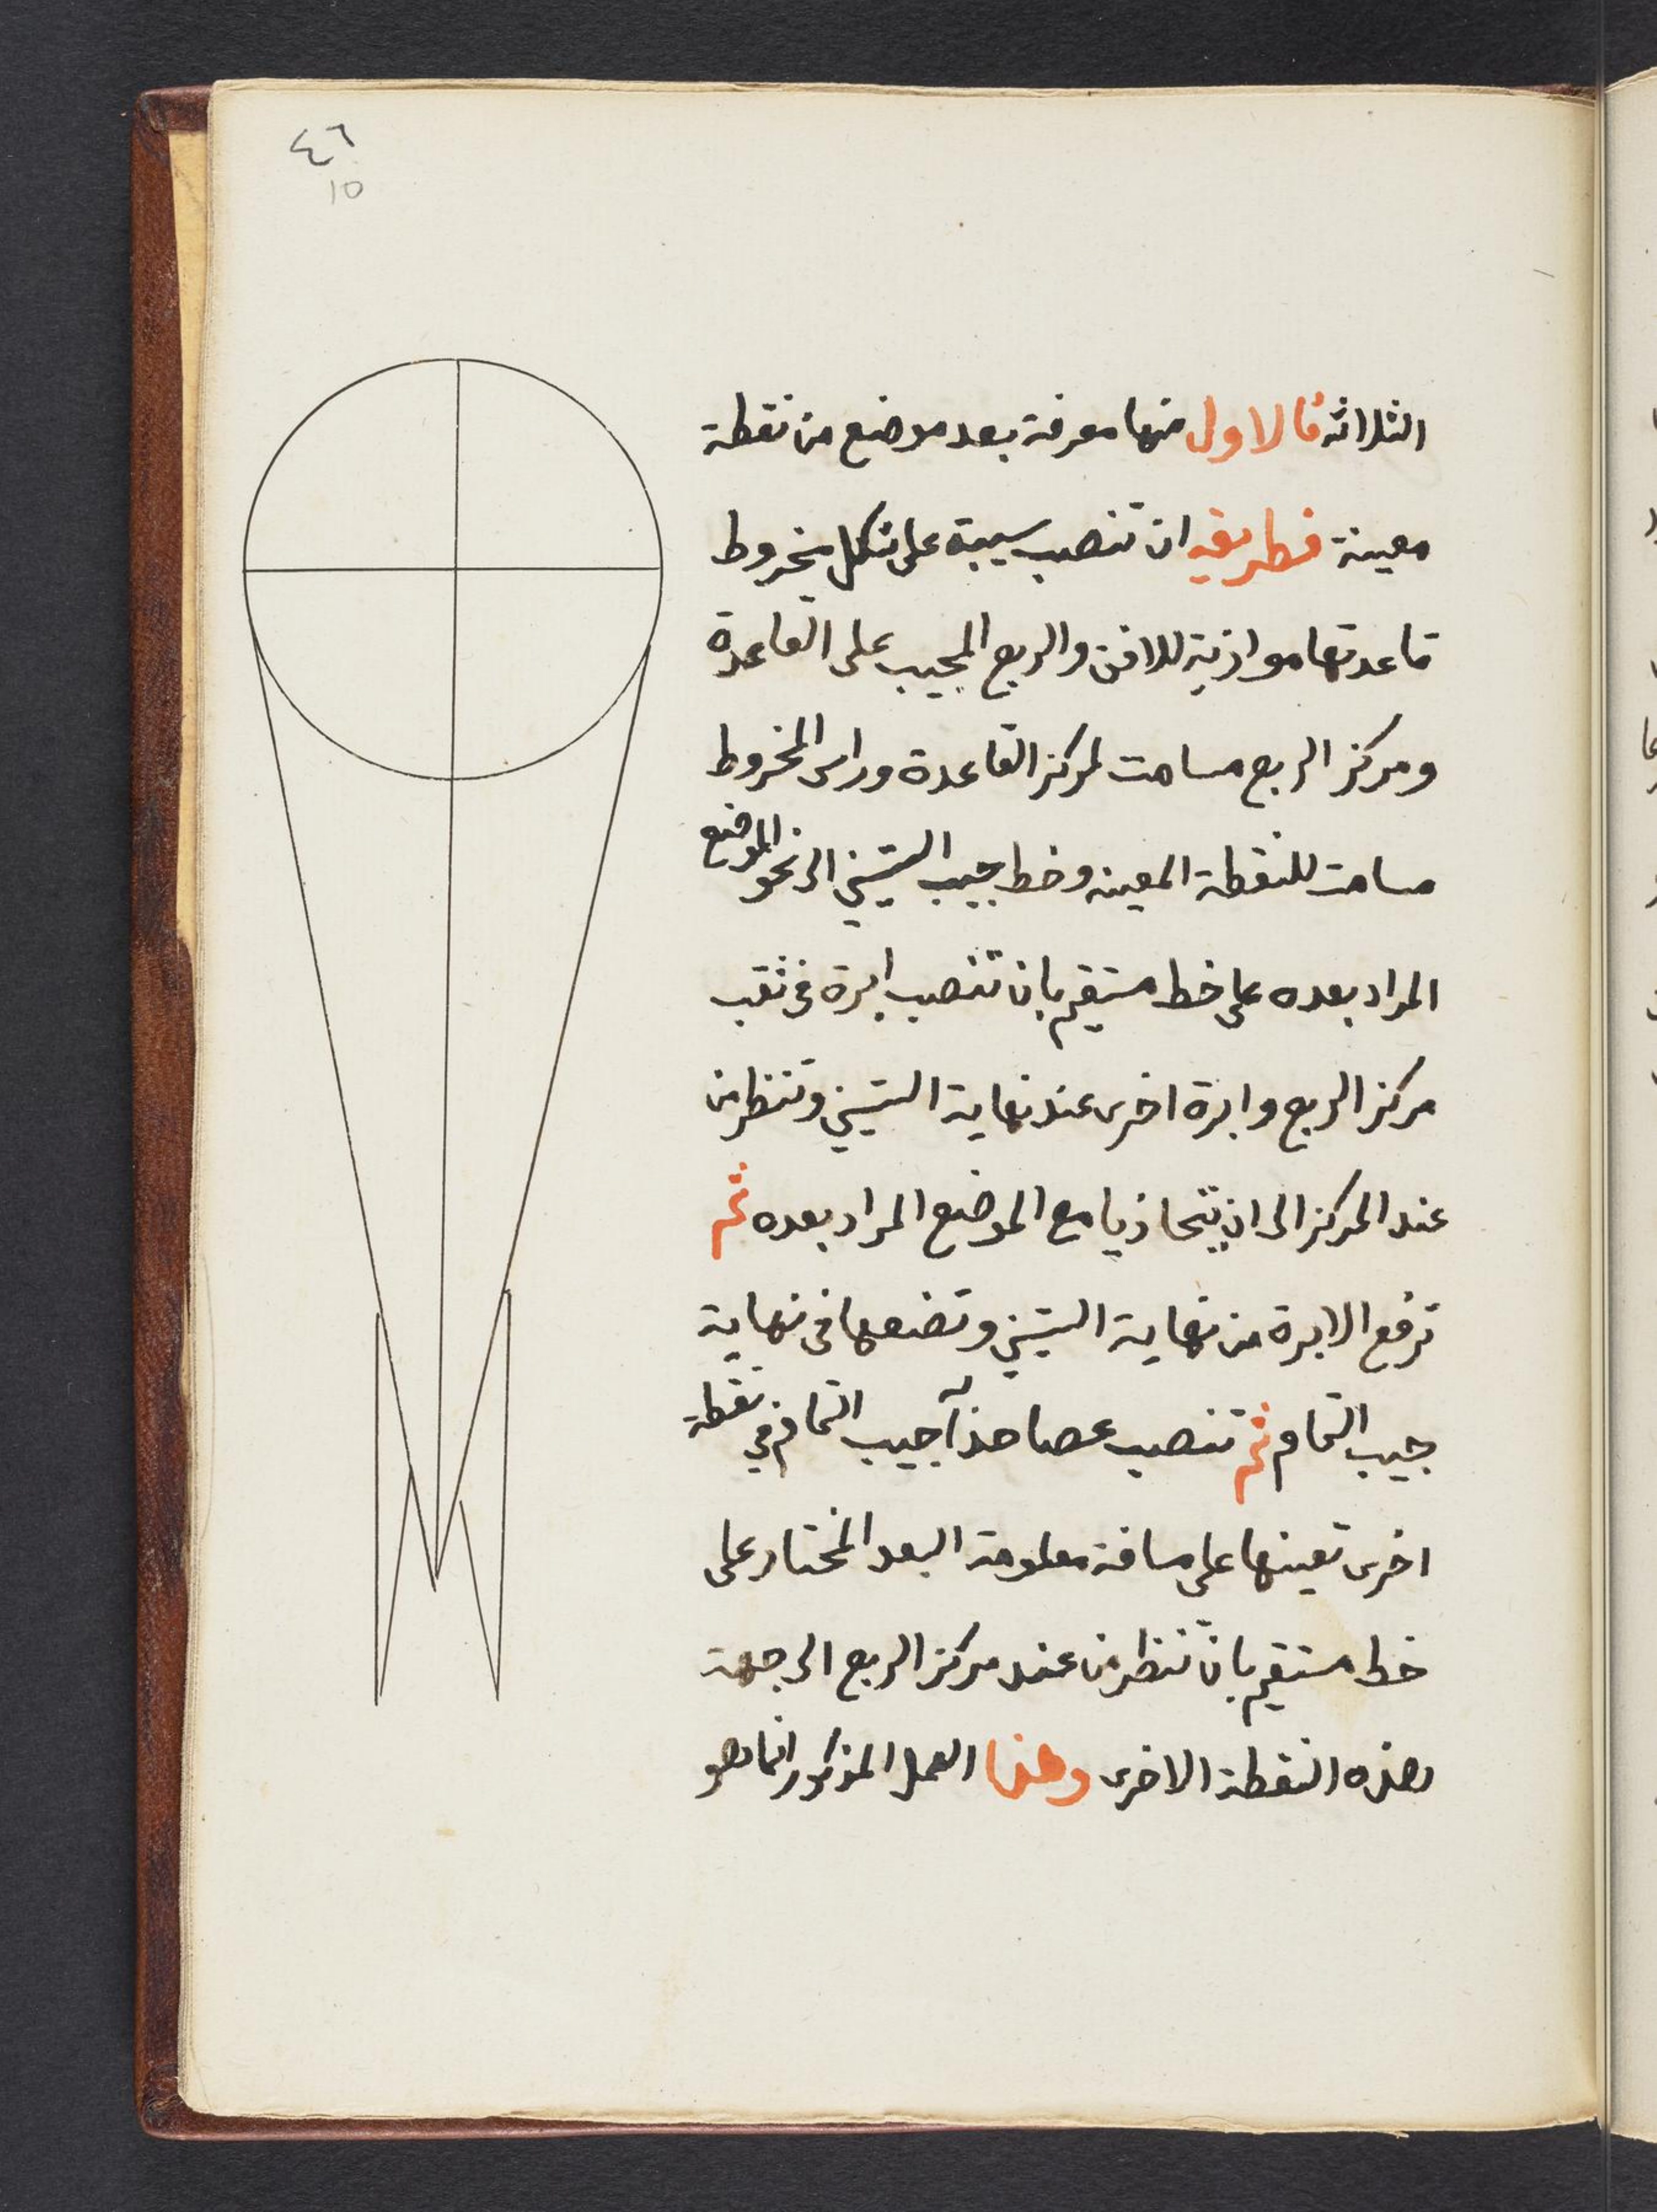 ٤٦
10
الثلاثه فالاول منها معرفة بعد موضع من نقطة
معينة فطريقه ان تنصب سيبة على شكل مخروط
قاعدتها موازية للافق والربع المجيب على القاعدة
ومركز الربع مسامت لمركز القاعدة وراس المخروط
مسامت للنقطة المعينه وخط جيب الستيني الى نحو الموضع
المراد بعده على خط مستقيم بان تنصب ابرة في ثقب
مركز الربع وابرة اخرى عند نهاية الستيني وتنظر من
عند المركز الى ان يتحاذيا مع الموضع المراد بعده ثم
ترفع الابرة من نهاية الستيني وتضعها في نهاية
جيب التمام ثم تنصب عصا حذآء جيب التمام في نقطة
اخرى تعينها على مسافة معلومة البعد المختار على
خط مستقيم بان تنظر من عند مركز الربع الى جهة
هذه النقطة الاخرى وهذا العمل المذكور انما هو